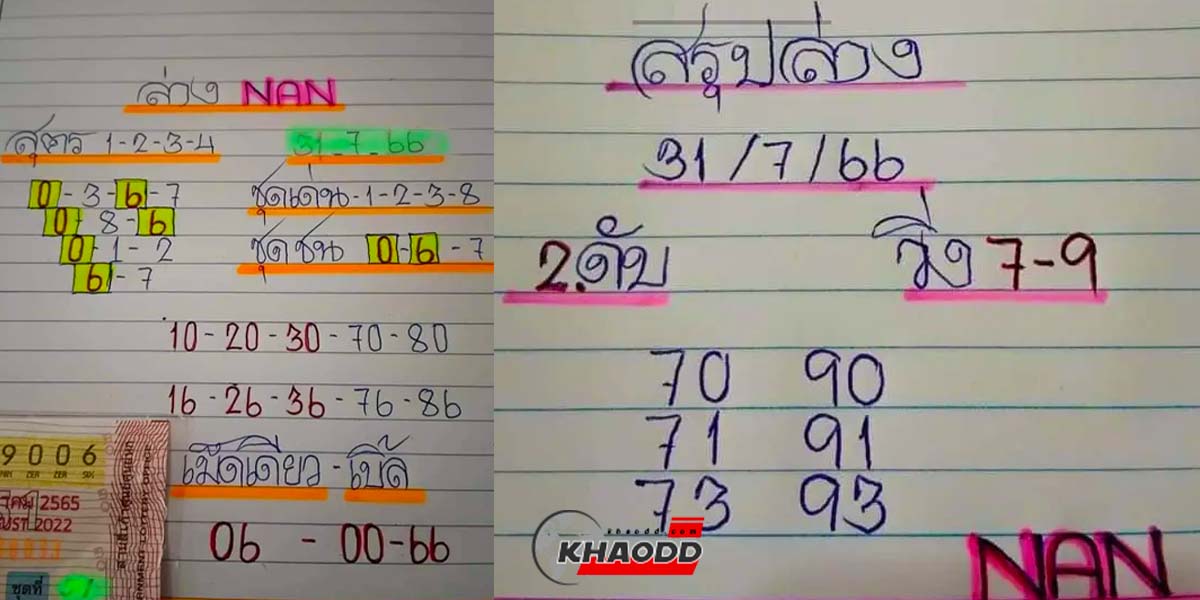 ล่าง NAN
สูตร 1-2-3-4
31-7-66
0-3-6-7
ชุดเด่น-1-2-3-8
0-8-6
0-1-2
ชุดชน 0-6-7
6-7
10-20-30-70-80
16-26-36-76-86
เม็ดเดียว-เบิ้ล
06 - 00-66
9 0 0 6
ZER ZER SIX
2565
2022
ชุดที่
สรุปล่าง
31/7/66
2.ดับ
วิ่ง 7-9
70 90
71 91
73 93
khaodd.com
KHAODD
NAN